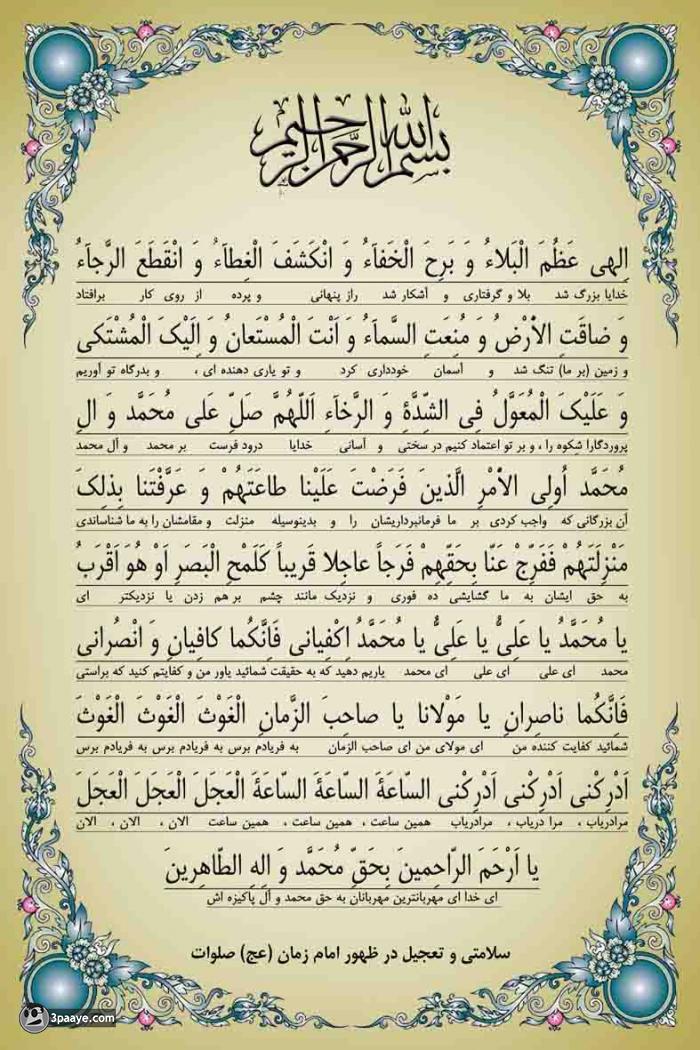 بسم الله الرحمن الرحیم
اِلهی عَظُمَ الْبَلاءُ وَ بَرِحَ الْخَفاَءُ وَ انْکَشَفَ الْغِطاَءُ وَ انْقَطَعَ الرَّجاَءُ
خدایا بزرگ شد بلا و گرفتاری و آشکار شد راز پنهانی و پرده از روی کار برافتاد
وَ ضاقَتِ الاْرْضُ وَ مُنِعَتِ السَّماَءُ وَ اَنْتَ الْمُسْتَعانُ وَ اِلَیْکَ الْمُشْتَکی
و زمین (بر ما) تنگ شد و آسمان خودداری کرد و تو یاری دهنده ای ، و بدرگاه تو آوریم
وَ عَلَیْکَ الْمُعَوَّلُ فِی الشِّدَّةِ وَ الرَّخاَءِ اَللّهُمَّ صَلِّ عَلی مُحَمَّد وَ الِ
پروردگارا شکوه را ، و بر تو اعتماد کنیم در سختی و آسانی خدایا درود فرست بر محمد و آل محمد
مُحَمَّد اُولِی الاْمْرِ الَّذینَ فَرَضْتَ عَلَیْنا طاعَتَهُمْ وَ عَرَّفْتَنا بِذلِکَ
آن بزرگانی که واجب کردی بر ما فرمانبرداریشان را و بدینوسیله منزلت و مقامشان را به ما شناساندی
مَنْزِلَتَهُمْ فَفَرِّجْ عَنّا بِحَقِّهِمْ فَرَجاً عاجِلا قَریباً کَلَمْحِ الْبَصَرِ اَوْ هُوَ اَقْرَبُ
به حق ایشان به ما گشایشی ده فوری و نزدیک مانند چشم بر هم زدن یا نزدیکتر ای
یا مُحَمَّدُ یا عَلِیُّ یا عَلِیُّ یا مُحَمَّدُ اِکْفِیانی فَاِنَّکُما کافِیانِ وَ انْصُرانی
محمد ای علی ای علی ای محمد یاریم دهید که به حقیقت شمائید یاور من و کفایتم کنید که براستی
فَاِنَّکُما ناصِرانِ یا مَوْلانا یا صاحِبَ الزَّمانِ الْغَوْثَ الْغَوْثَ الْغَوْثَ
شمائید کفایت کننده من ای مولای من ای صاحب الزمان به فریادم برس به فریادم برس به فریادم برس
اَدْرِکْنی اَدْرِکْنی اَدْرِکْنی السّاعَةَ السّاعَةَ السّاعَةَ الْعَجَلَ الْعَجَلَ الْعَجَلَ
مرادریاب ، مرا دریاب ، مرادریاب همین ساعت ، همین ساعت ، همین ساعت الان ، الان ، الان
یا اَرْحَمَ الرّاحِمینَ بِحَقِّ مُحَمَّد وَ الِهِ الطّاهِرینَ
ای خدا ای مهربانترین مهربانان به حق محمد و آل پاکیزه اش
سلامتی و تعجیل در ظهور امام زمان (عج) صلوات
3paaye.com